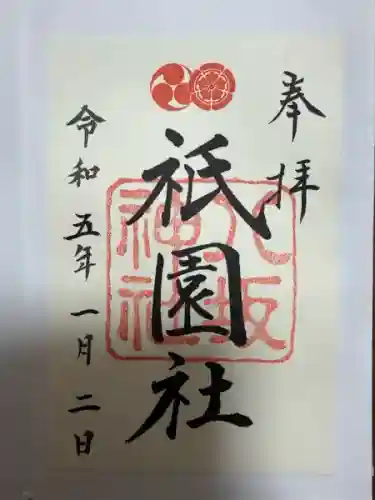 奉拝
祇園社
八坂神社
令和五年一月二日